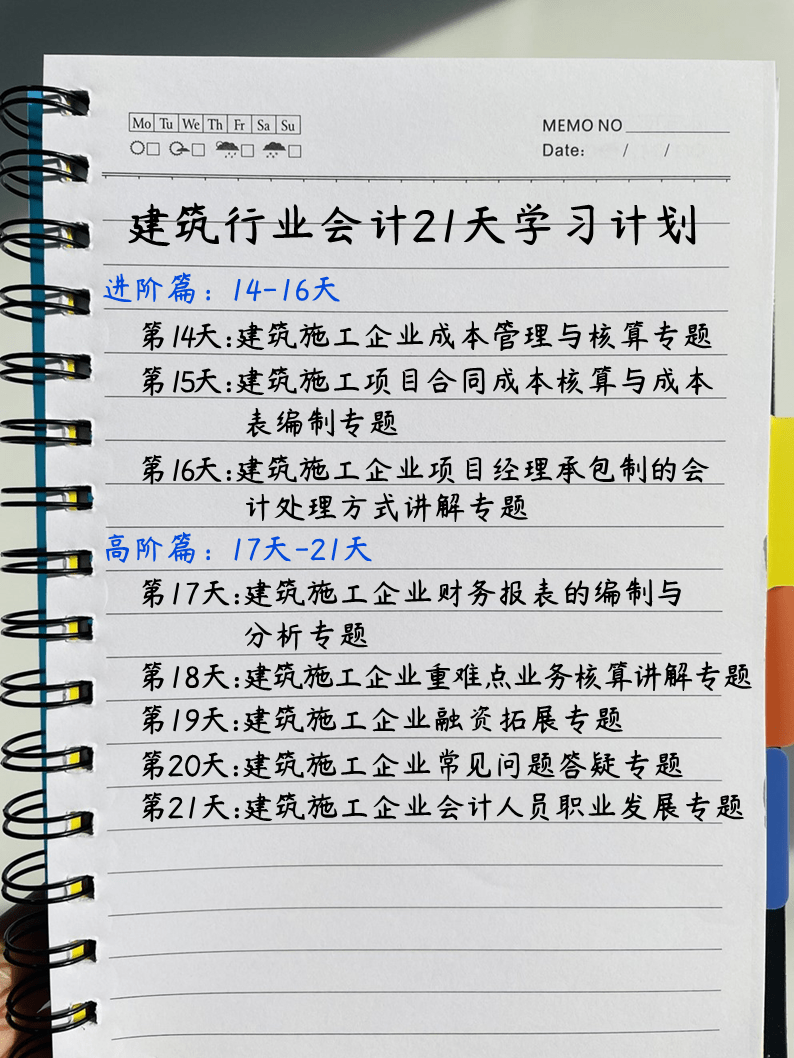 Mo Tu We Th Fr Sa Su
MEMO NO
Date: / /
建筑行业会计21天学习计划
进阶篇：14-16天
第14天:建筑施工企业成本管理与核算专题
第15天:建筑施工项目合同成本核算与成本
表编制专题
第16天:建筑施工企业项目经理承包制的会
计处理方式讲解专题
高阶篇：17天-21天
第17天:建筑施工企业财务报表的编制与
分析专题
第18天:建筑施工企业重难点业务核算讲解专题
第19天:建筑施工企业融资拓展专题
第20天:建筑施工企业常见问题答疑专题
第21天:建筑施工企业会计人员职业发展专题